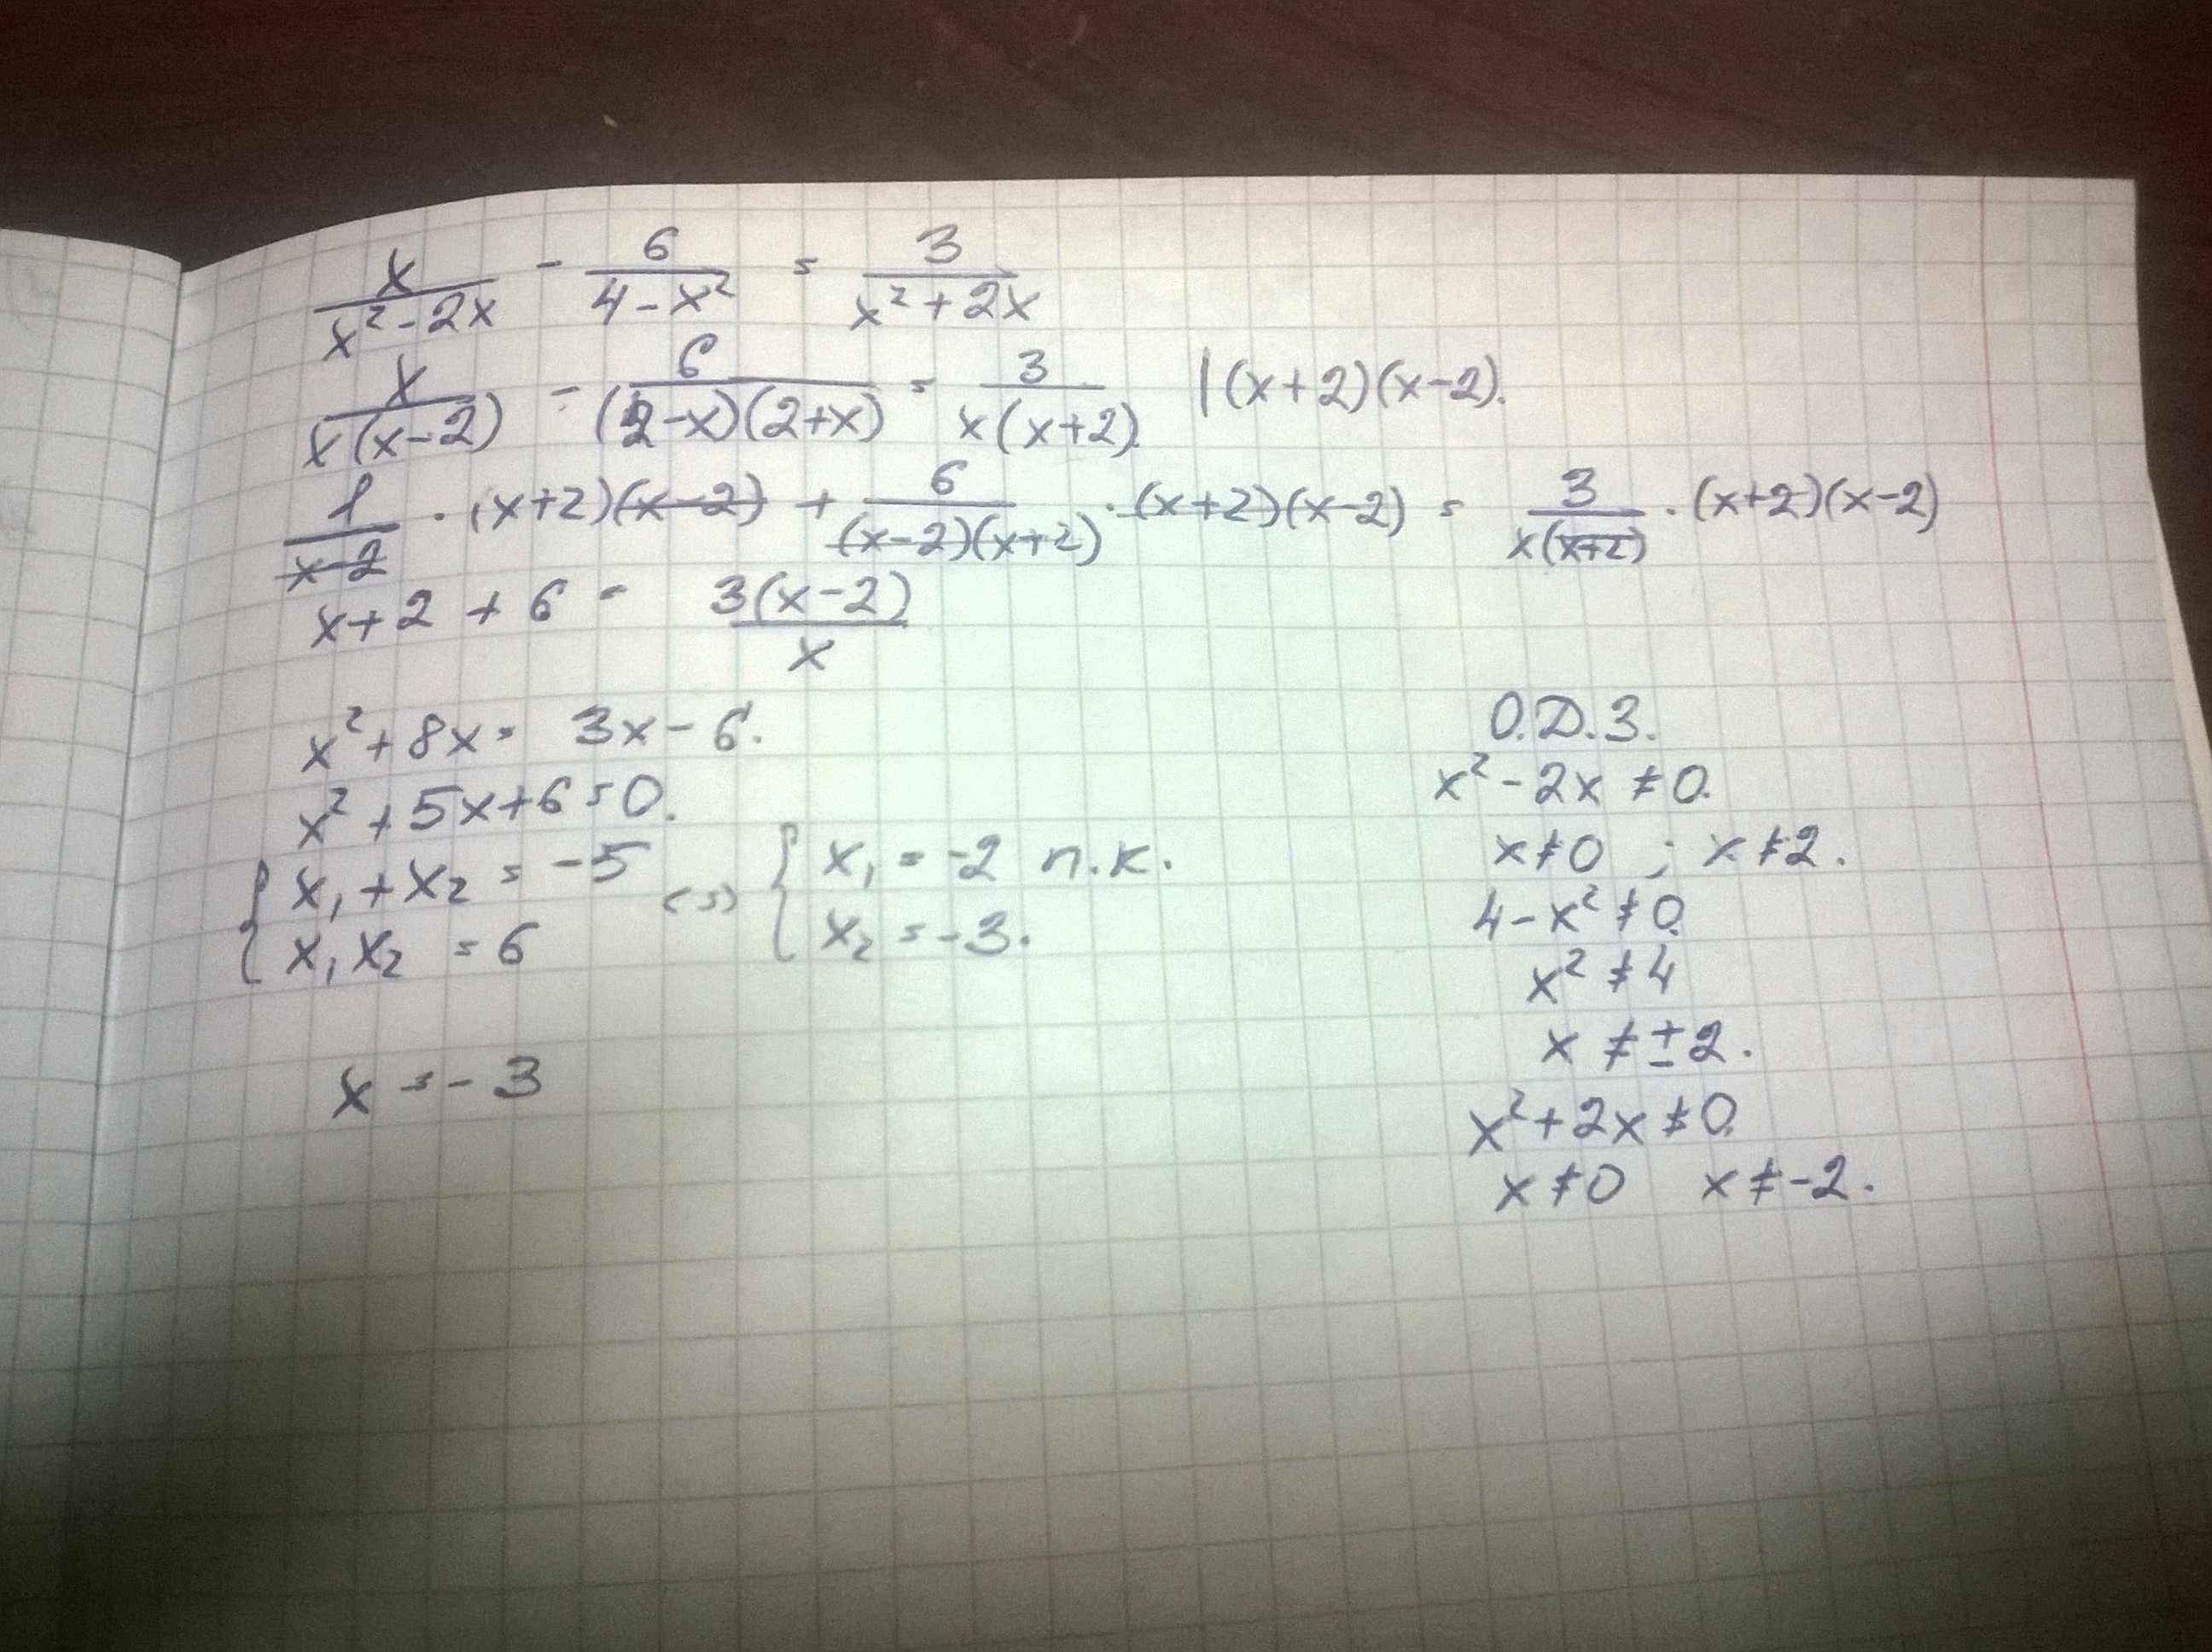 x/(x² - 2x) - 6/(4 - x²) = 3/(x² + 2x)
x/(x(x-2)) - 6/((2-x)(2+x)) = 3/(x(x+2)) | (x+2)(x-2).
1/(x-2) · (x+2)(x-2) + 6/((x-2)(x+2)) · (x+2)(x-2) = 3/(x(x+2)) · (x+2)(x-2)
x+2 + 6 = 3(x-2)/x
x² + 8x = 3x - 6.
x² + 5x + 6 = 0.
{ x₁ + x₂ = -5
x₁ x₂ = 6
<=>
{ x₁ = -2 п.к.
x₂ = -3.
x = -3
О.D.З.
x² - 2x ≠ 0.
x ≠ 0 ; x ≠ 2.
4 - x² ≠ 0.
x² ≠ 4
x ≠ ±2.
x² + 2x ≠ 0.
x ≠ 0 x ≠ -2.